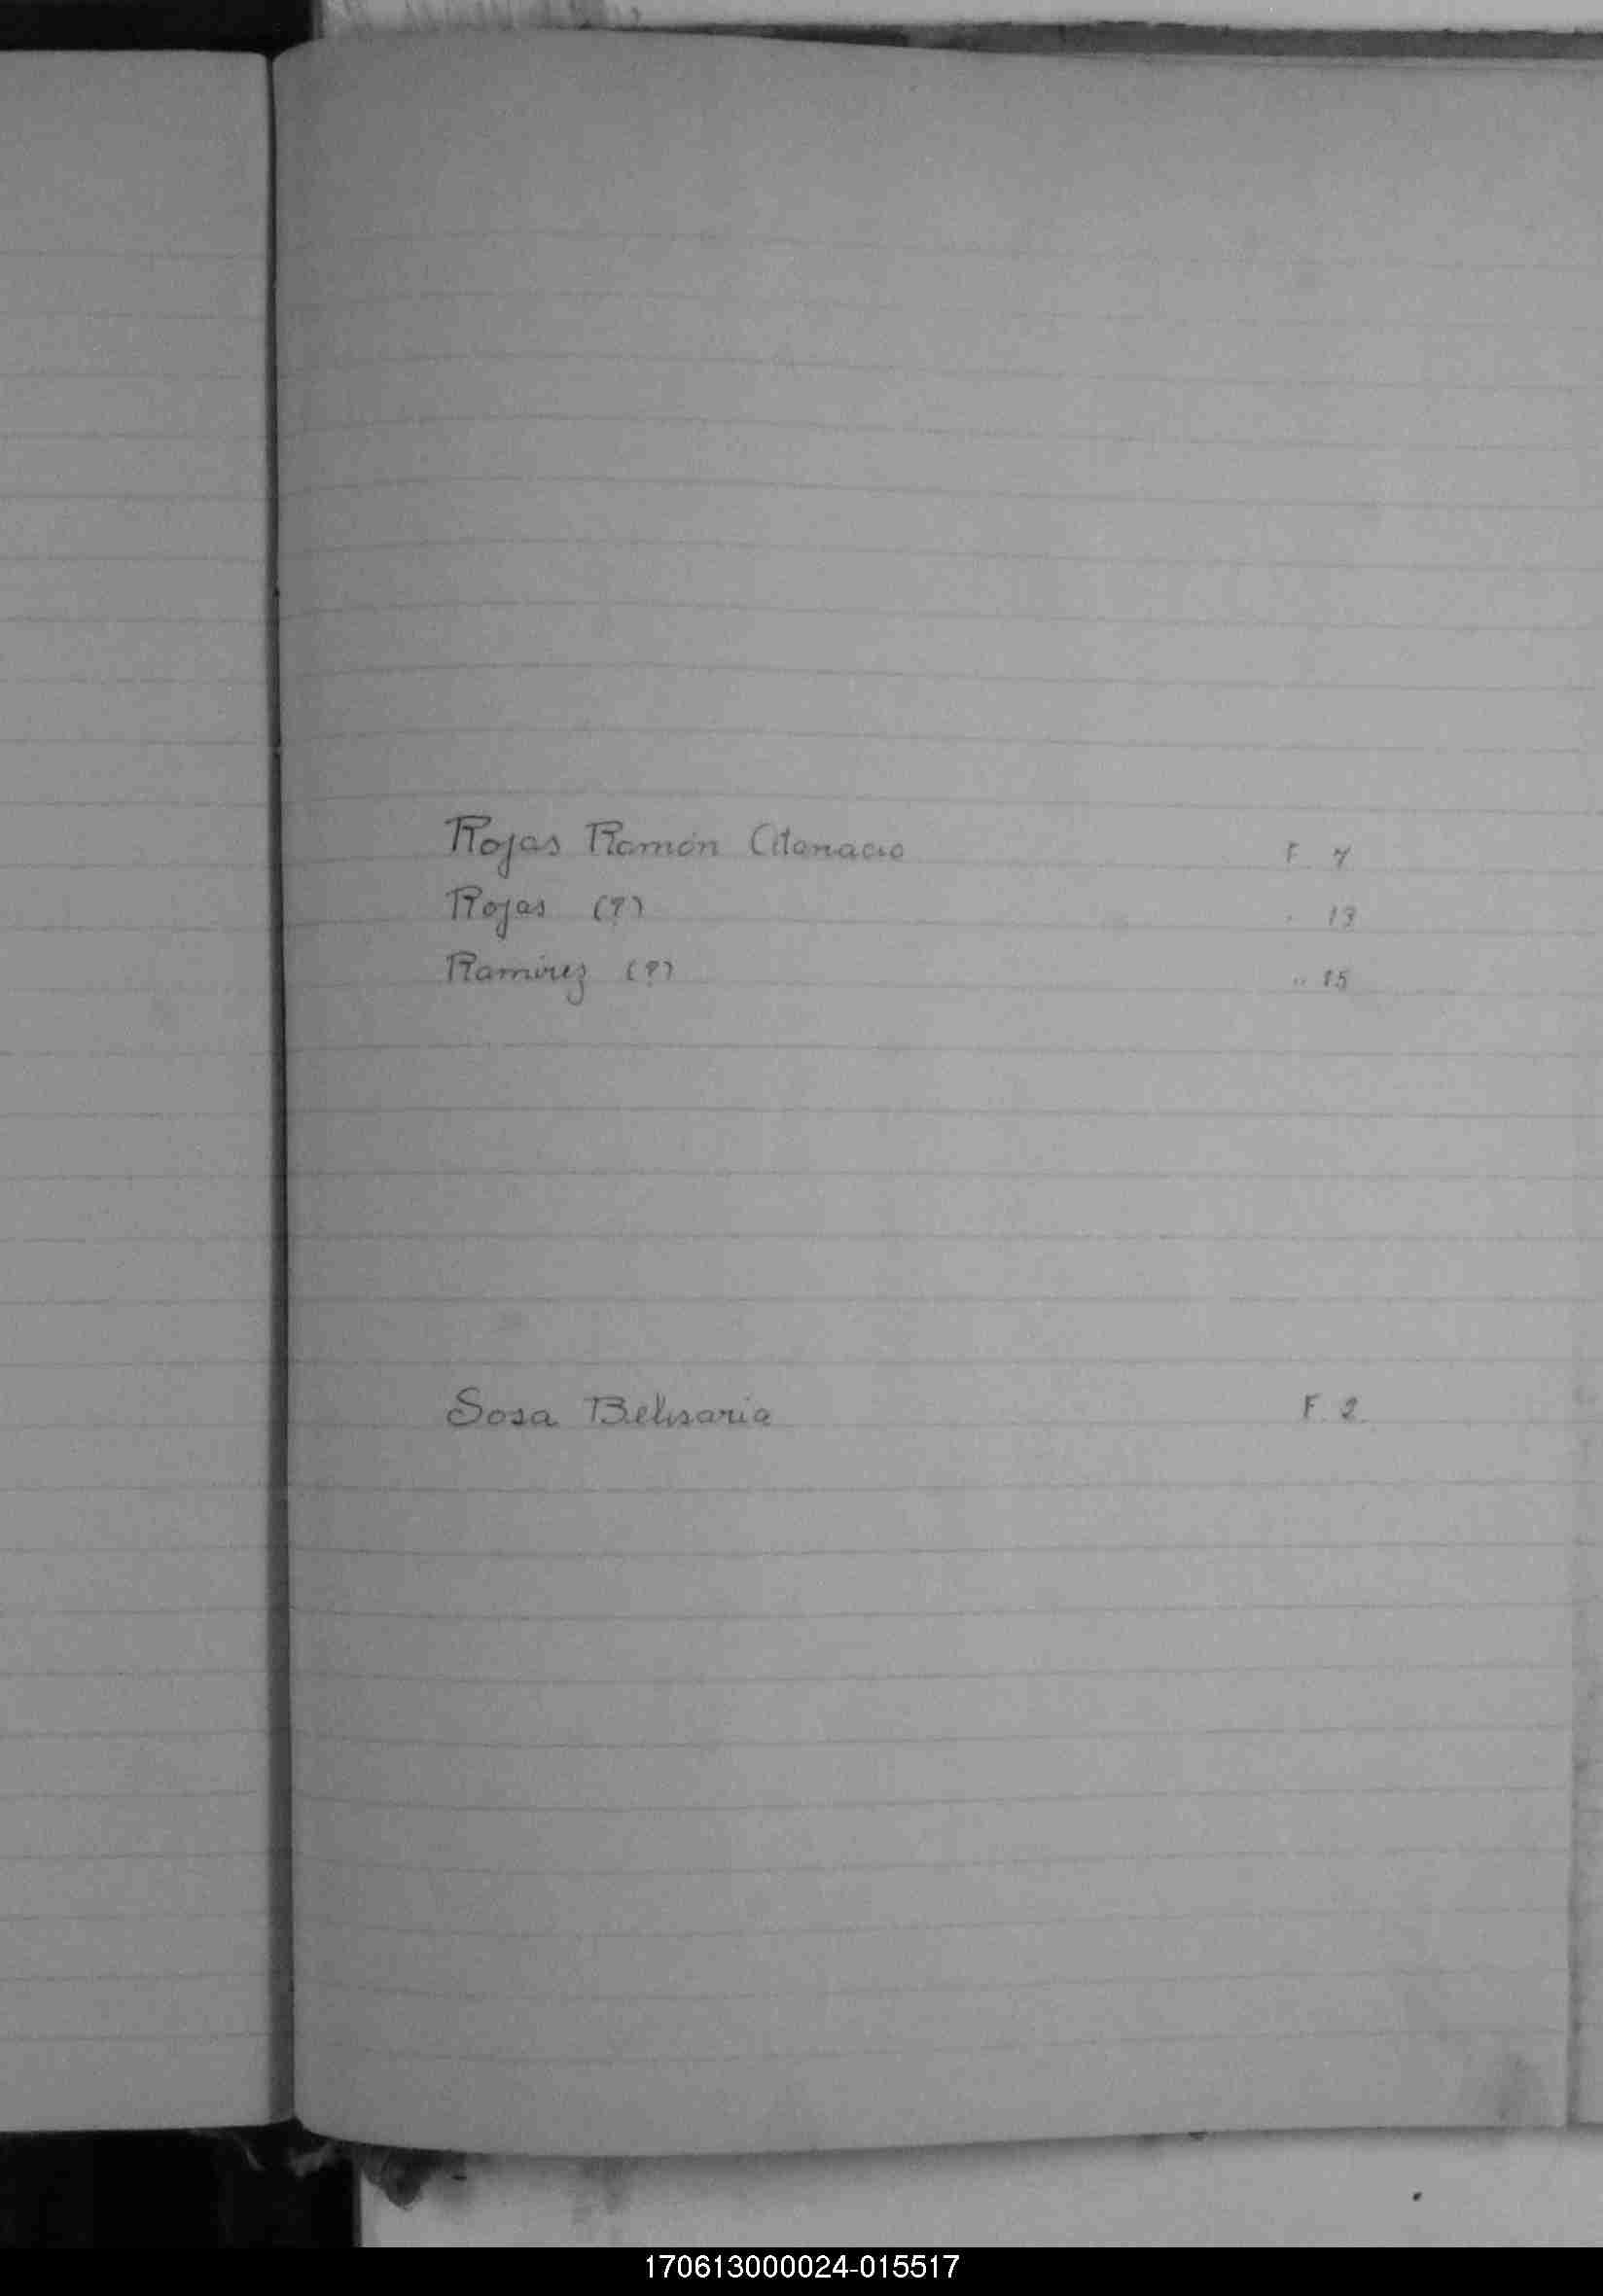 Rojas Ramón Atanacio F. 7
Rojas (?) " 13
Ramírez (?) " 15
Sosa Belisaria F. 2
170613000024-015517